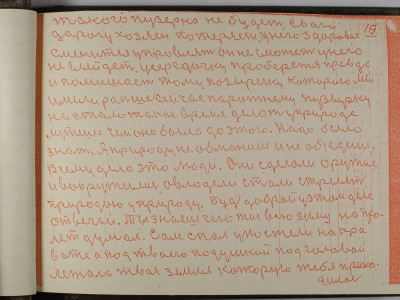 такого пузырка не будет, своего
дорогу хозяин потеряет, у него здоровье
сменится управлять он не сможет у него
не выйдет, усердочку проберется правда
и помещает тому пузыречку которого мы
имели раньше сейчас наружному пузырку
настало такое время дело в природе
лутшие чем оно было до этого. Надо было
знать. А природу не обманули и не объедини.
Всему дело это люди. Они сделали оружие
и вокружили, овлодели стали стрелять
природою у природу. Будь добрый у этом деле
отвечай. Ты знаешь чего ты всю зиму на
лет думал. Сам спал у постели на кра
вате а под твоею подушкой под головой
лежала твоя земля которую тебя прихо-
дилось